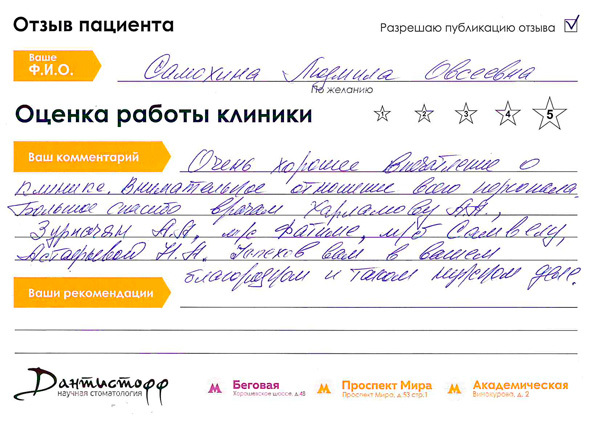 Отзыв пациента
Разрешаю публикацию отзыва
Ваше
Ф.И.О.
Самохина Людмила Овсеевна
По желанию
Оценка работы клиники
1 2 3 4 5
Ваш комментарий
Очень хорошее впечатление о
клинике. Внимательное отношение всего персонала.
Большое спасибо врачам Харламову А.А.,
Зурначян А.А, м/с Фатиме, м/бт Самвелу,
Астафьевой Н.А. Успехов вам в вашем
благородном и таком нужном деле.
Ваши рекомендации
Дантистофф
научная стоматология
М Беговая
Хорошевское шоссе, д.48
М Проспект Мира
Проспект Мира, д.53 стр.1
М Академическая
Винокурова, д. 2